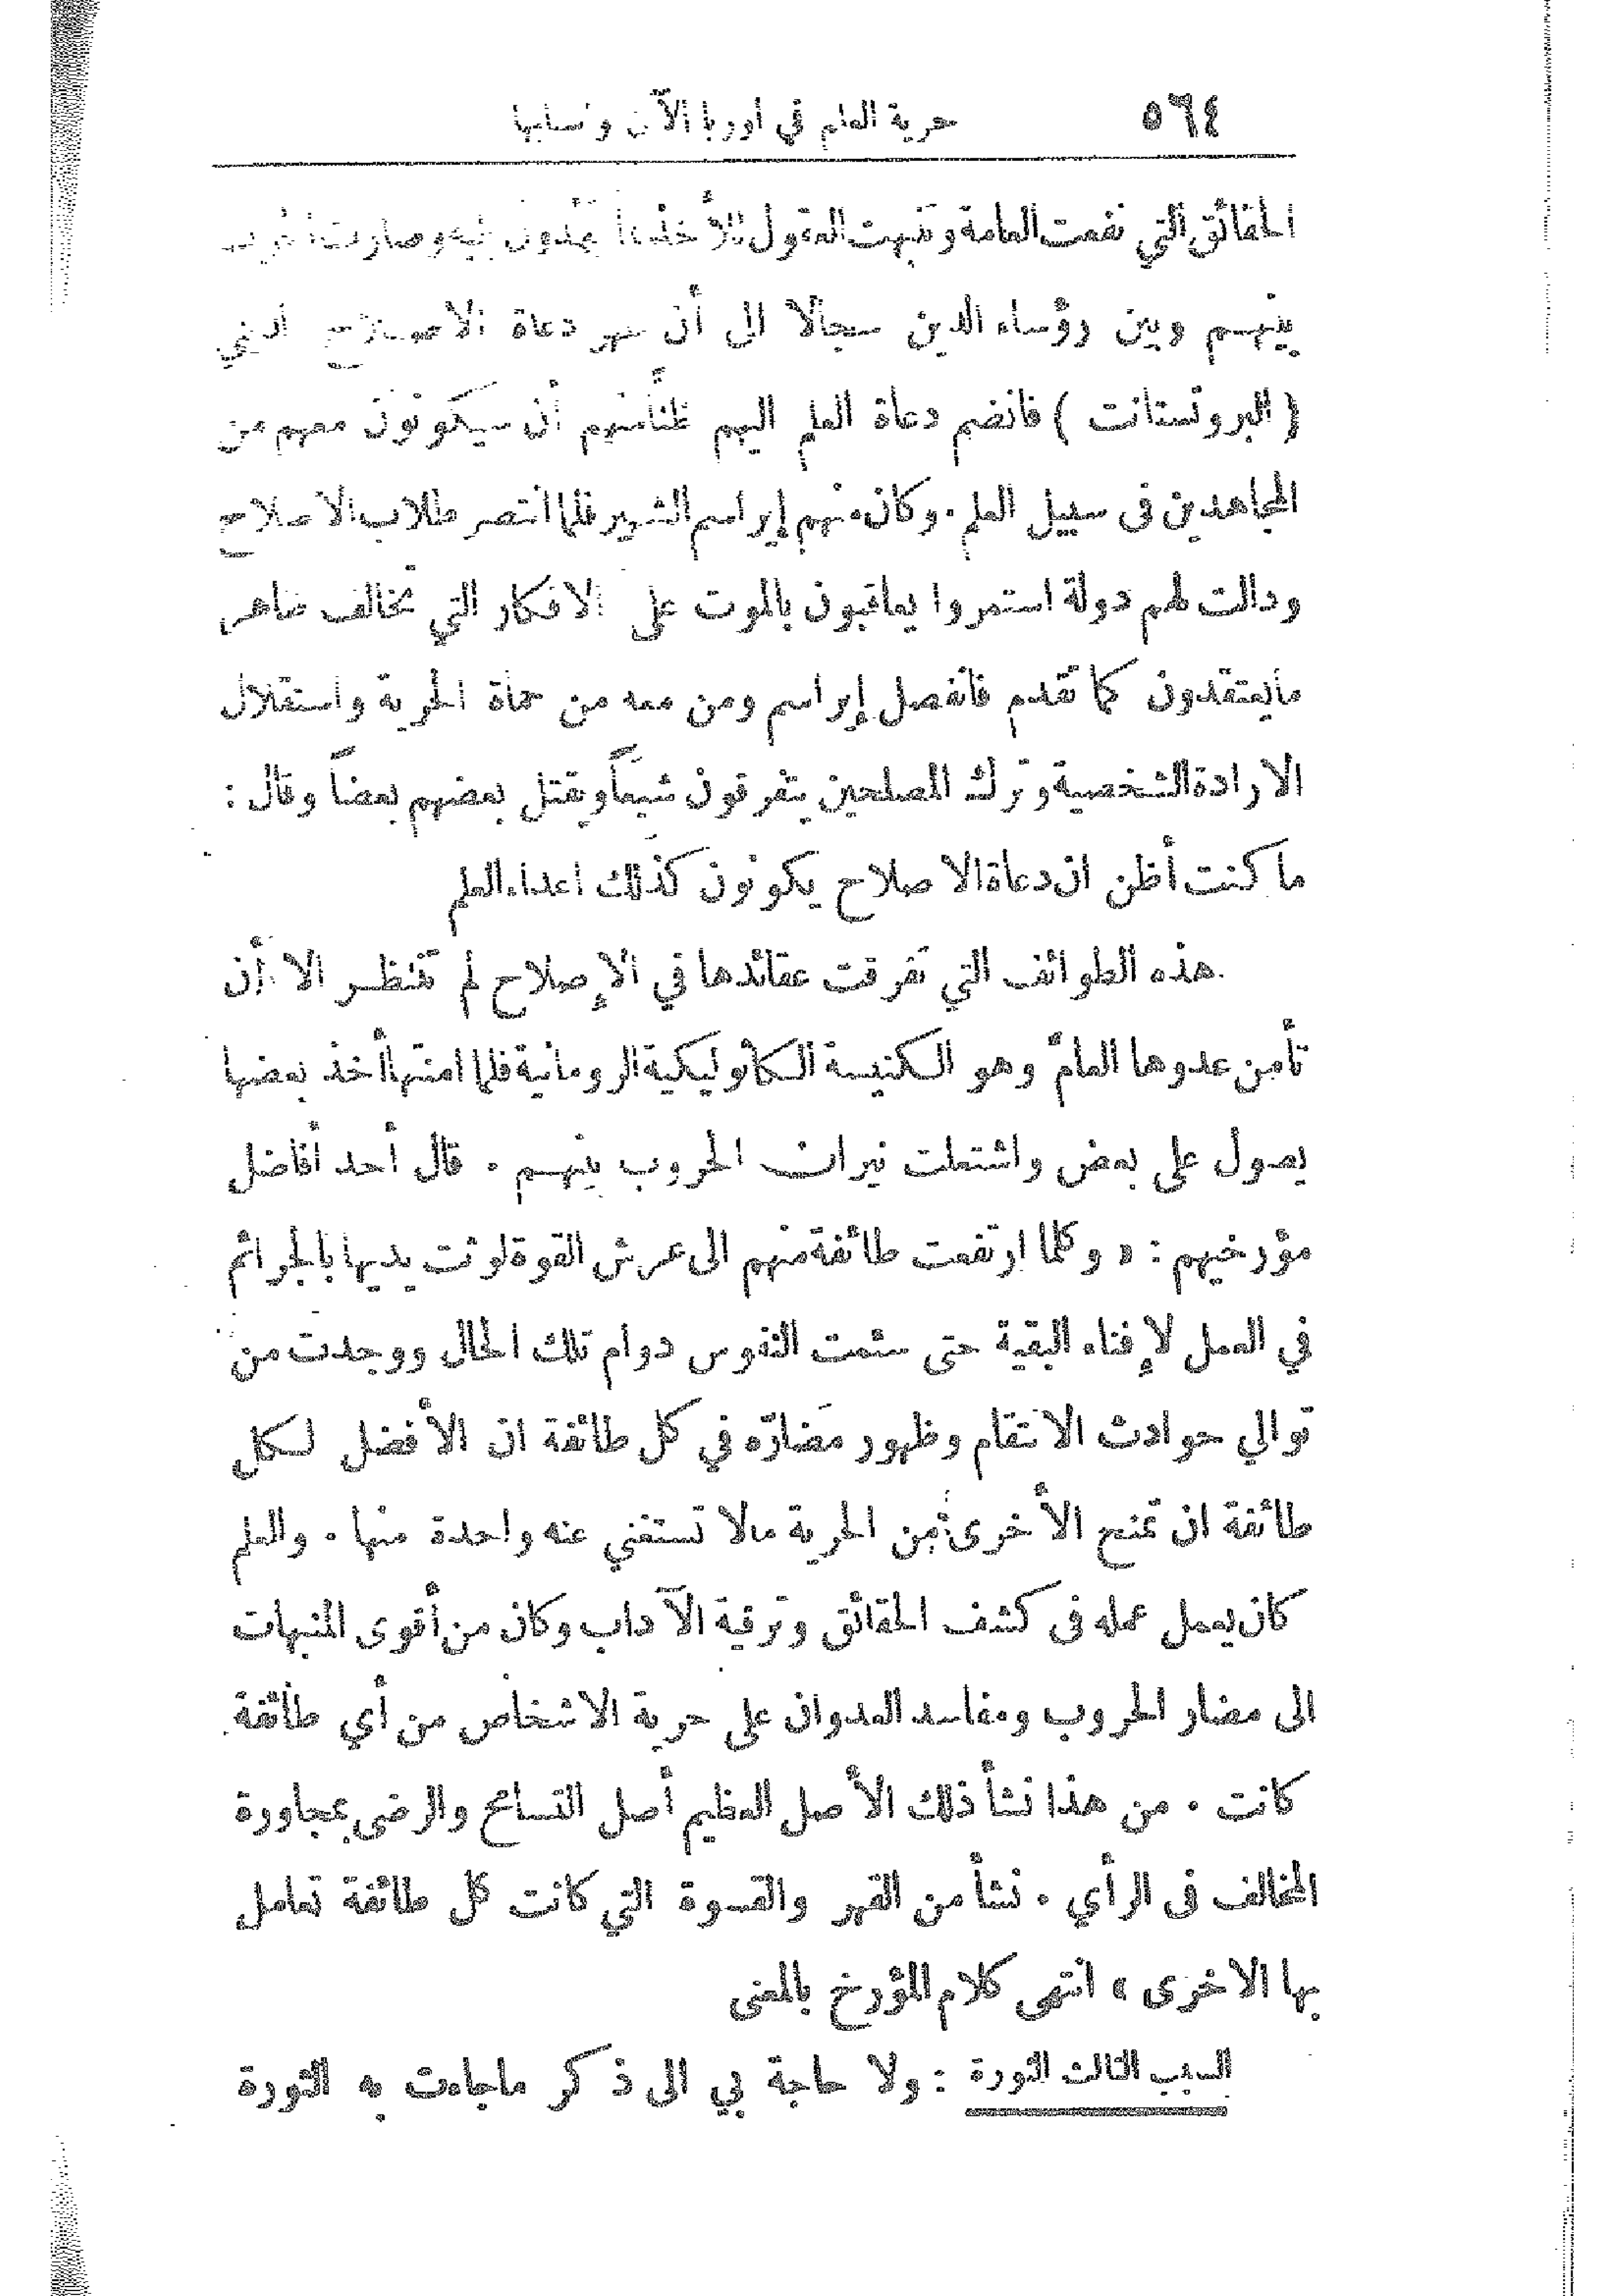 ٥٦٤ حرية العلم في أوربا الآن
الحقائق التي نفعت العامة ونبهت العقول للأخذ يجدون فيه وصارت
بينهـم وبين رؤساء الدين سجالا الى أن ظهر دعاة الاصلاح الديني
( البروتستانت ) فانضم دعاة العلم اليهم ظنا منهم أن سيكونون معهم من
المجاهدين فى سبيل العلم . وكان منهم إيراسم الشهير فلما انتصر طلاب الاصلاح
ودالت لهم دولة استمروا يعاقبون بالموت على الافكار التي تخالف ظاهر
مايعتقدون كما تقدم فانفصل إيراسم ومن معه من حماة الحرية واستقلال
الارادة الشخصية وترك المصلحين يتفرقون شيعاً ويقتل بعضهم بعضاً وقال :
ما كنت أظن ان دعاة الاصلاح يكونون كذلك اعداء العلم
هذه الطوائف التي تفرقت عقائدها في الإصلاح لم تنتظـر الا أن
تأمن عدوها العامّ وهو الكنيسة الكاثوليكية الرومانية فلما امنتها أخذ بعضها
يصول على بعض واشتعلت نيران الحروب بينهـم . قال أحد أفاضل
مؤرخيهم : « وكلما ارتفعت طائفة منهم الى عرش القوة لوثت يديها بالجرائم
في العمل لإفناء البقية حتى سئمت النفوس دوام تلك الحال ووجدت من
توالي حوادث الانتقام وظهور مَضارّه في كل طائفة ان الأفضل لكل
طائفة ان تمنح الأخرى من الحرية مالا تستغني عنه واحدة منها . والعلم
كان يعمل عمله فى كشف الحقائق وترقية الآداب وكان من أقوى المنبهات
الى مضار الحروب ومفاسد العدوان على حرية الاشخاص من أي طائفة
كانت . من هذا نشأ ذلك الأصل العظيم أصل التسامح والرضى بمجاورة
المخالف فى الرأي . نشأ من القهر والقسوة التي كانت كل طائفة تعامل
بها الاخرى » انتهى كلام المؤرخ بالمعنى
السبب الثالث الثورة : ولا حاجة بي الى ذكر ماجاءت به الثورة